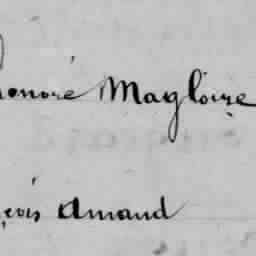 honoré Magloire
çois Amand